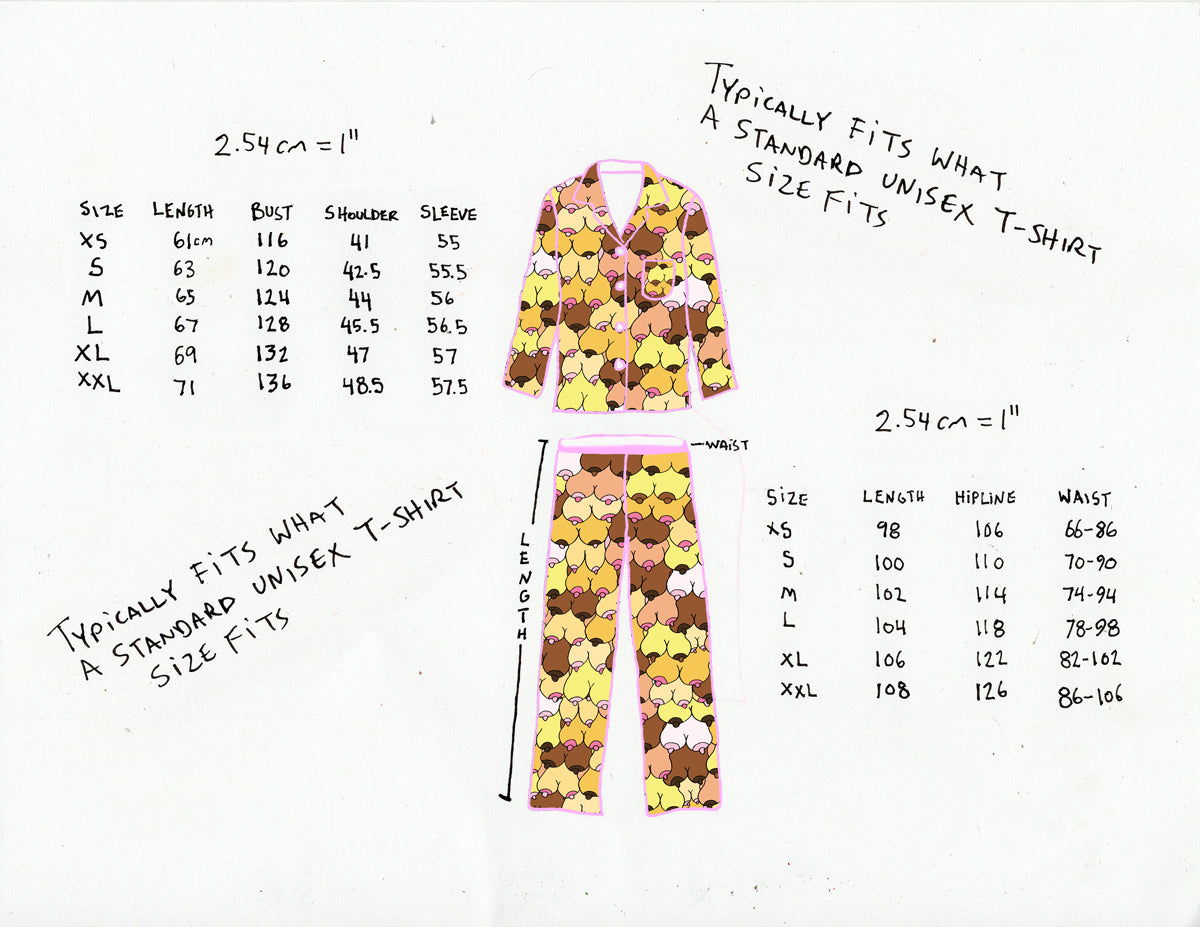 2.54 cm = 1"
SIZE LENGTH BUST SHOULDER SLEEVE
XS 61cm 116 41 55
S 63 120 42.5 55.5
M 65 124 44 56
L 67 128 45.5 56.5
XL 69 132 47 57
XXL 71 136 48.5 57.5
TYPiCALLY FiTS WHAT
A STANDARD UNISEX T-SHIRT
SiZE FiTS
WAiST
LENGTH
2.54 cm = 1"
SiZE LENGTH HiPLINE WAIST
XS 98 106 66-86
S 100 110 70-90
M 102 114 74-94
L 104 118 78-98
XL 106 122 82-102
XXL 108 126 86-106
TYPiCALLY FiTS WHAT
A STANDARD UNISEX T-SHIRT
SiZE FiTS